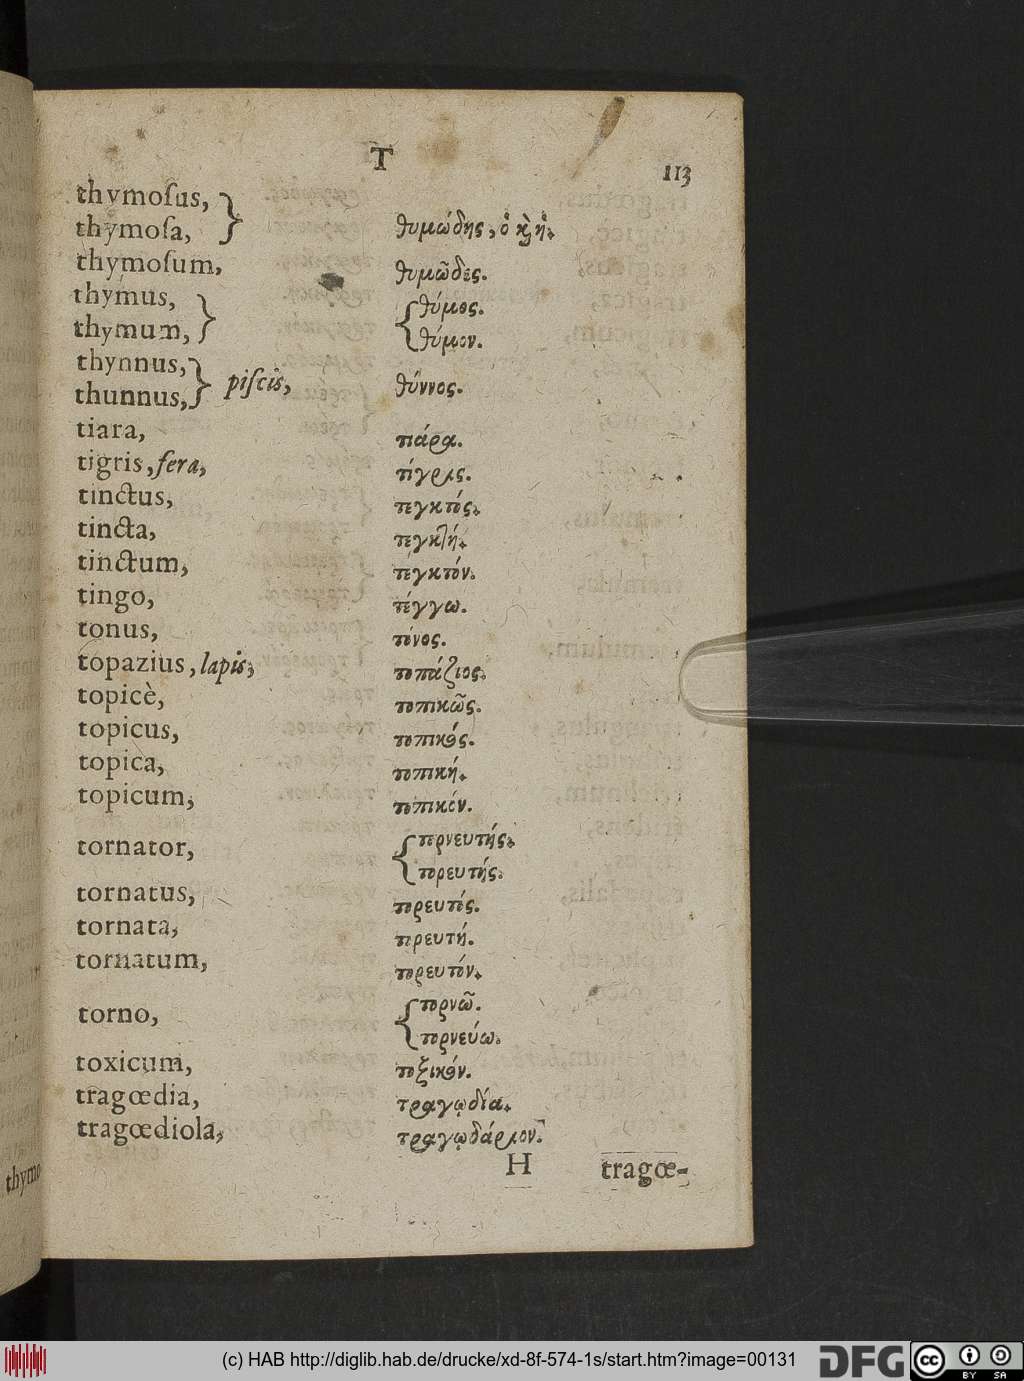 T 113
thymoſus, } θυμώδης, ὁ κὴ ἡ.
thymoſa,
thymoſum, θυμῶδες.
thymus, } { θύμος.
thymum, θύμον.
thynnus, } piſcis, θύννος.
thunnus,
tiara, τιάρα.
tigris, fera, τίγρις.
tinctus, τεγκτός.
tincta, τεγκτή.
tinctum, τεγκτόν.
tingo, τέγγω.
tonus, τόνος.
topazius, lapis, τοπάζιος.
topicè, τοπικῶς.
topicus, τοπικός.
topica, τοπική.
topicum, τοπικόν.
tornator, { τορνευτής.
τορευτής.
tornatus, τορευτός.
tornata, τορευτή.
tornatum, τορευτόν.
torno, { τορνῶ.
τορνεύω.
toxicum, τοξικόν.
tragœdia, τραγῳδία.
tragœdiola, τραγῳδάριον.
H tragœ-
thymo
(c) HAB http://diglib.hab.de/drucke/xd-8f-574-1s/start.htm?image=00131
DFG cc BY SA